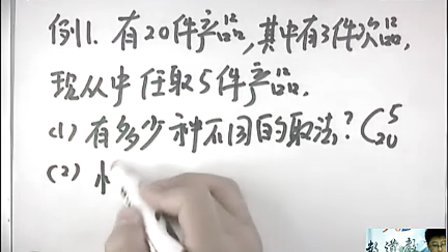 例11. 有20件产品,其中有3件次品,
现从中任取5件产品.
(1) 有多少种不同的取法? C₂₀⁵
(2)